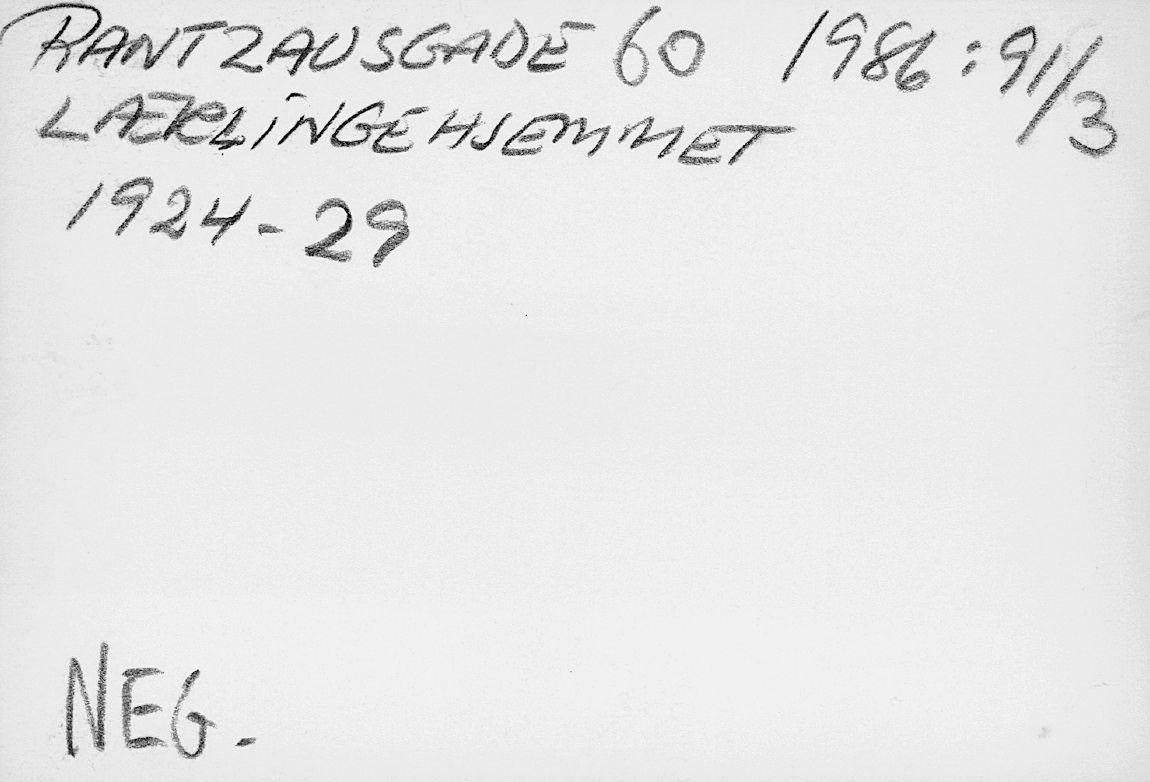 RANTZAUSGADE 60 1986:91/3
LÆRLINGEHJEMMET
1924-29
NEG.